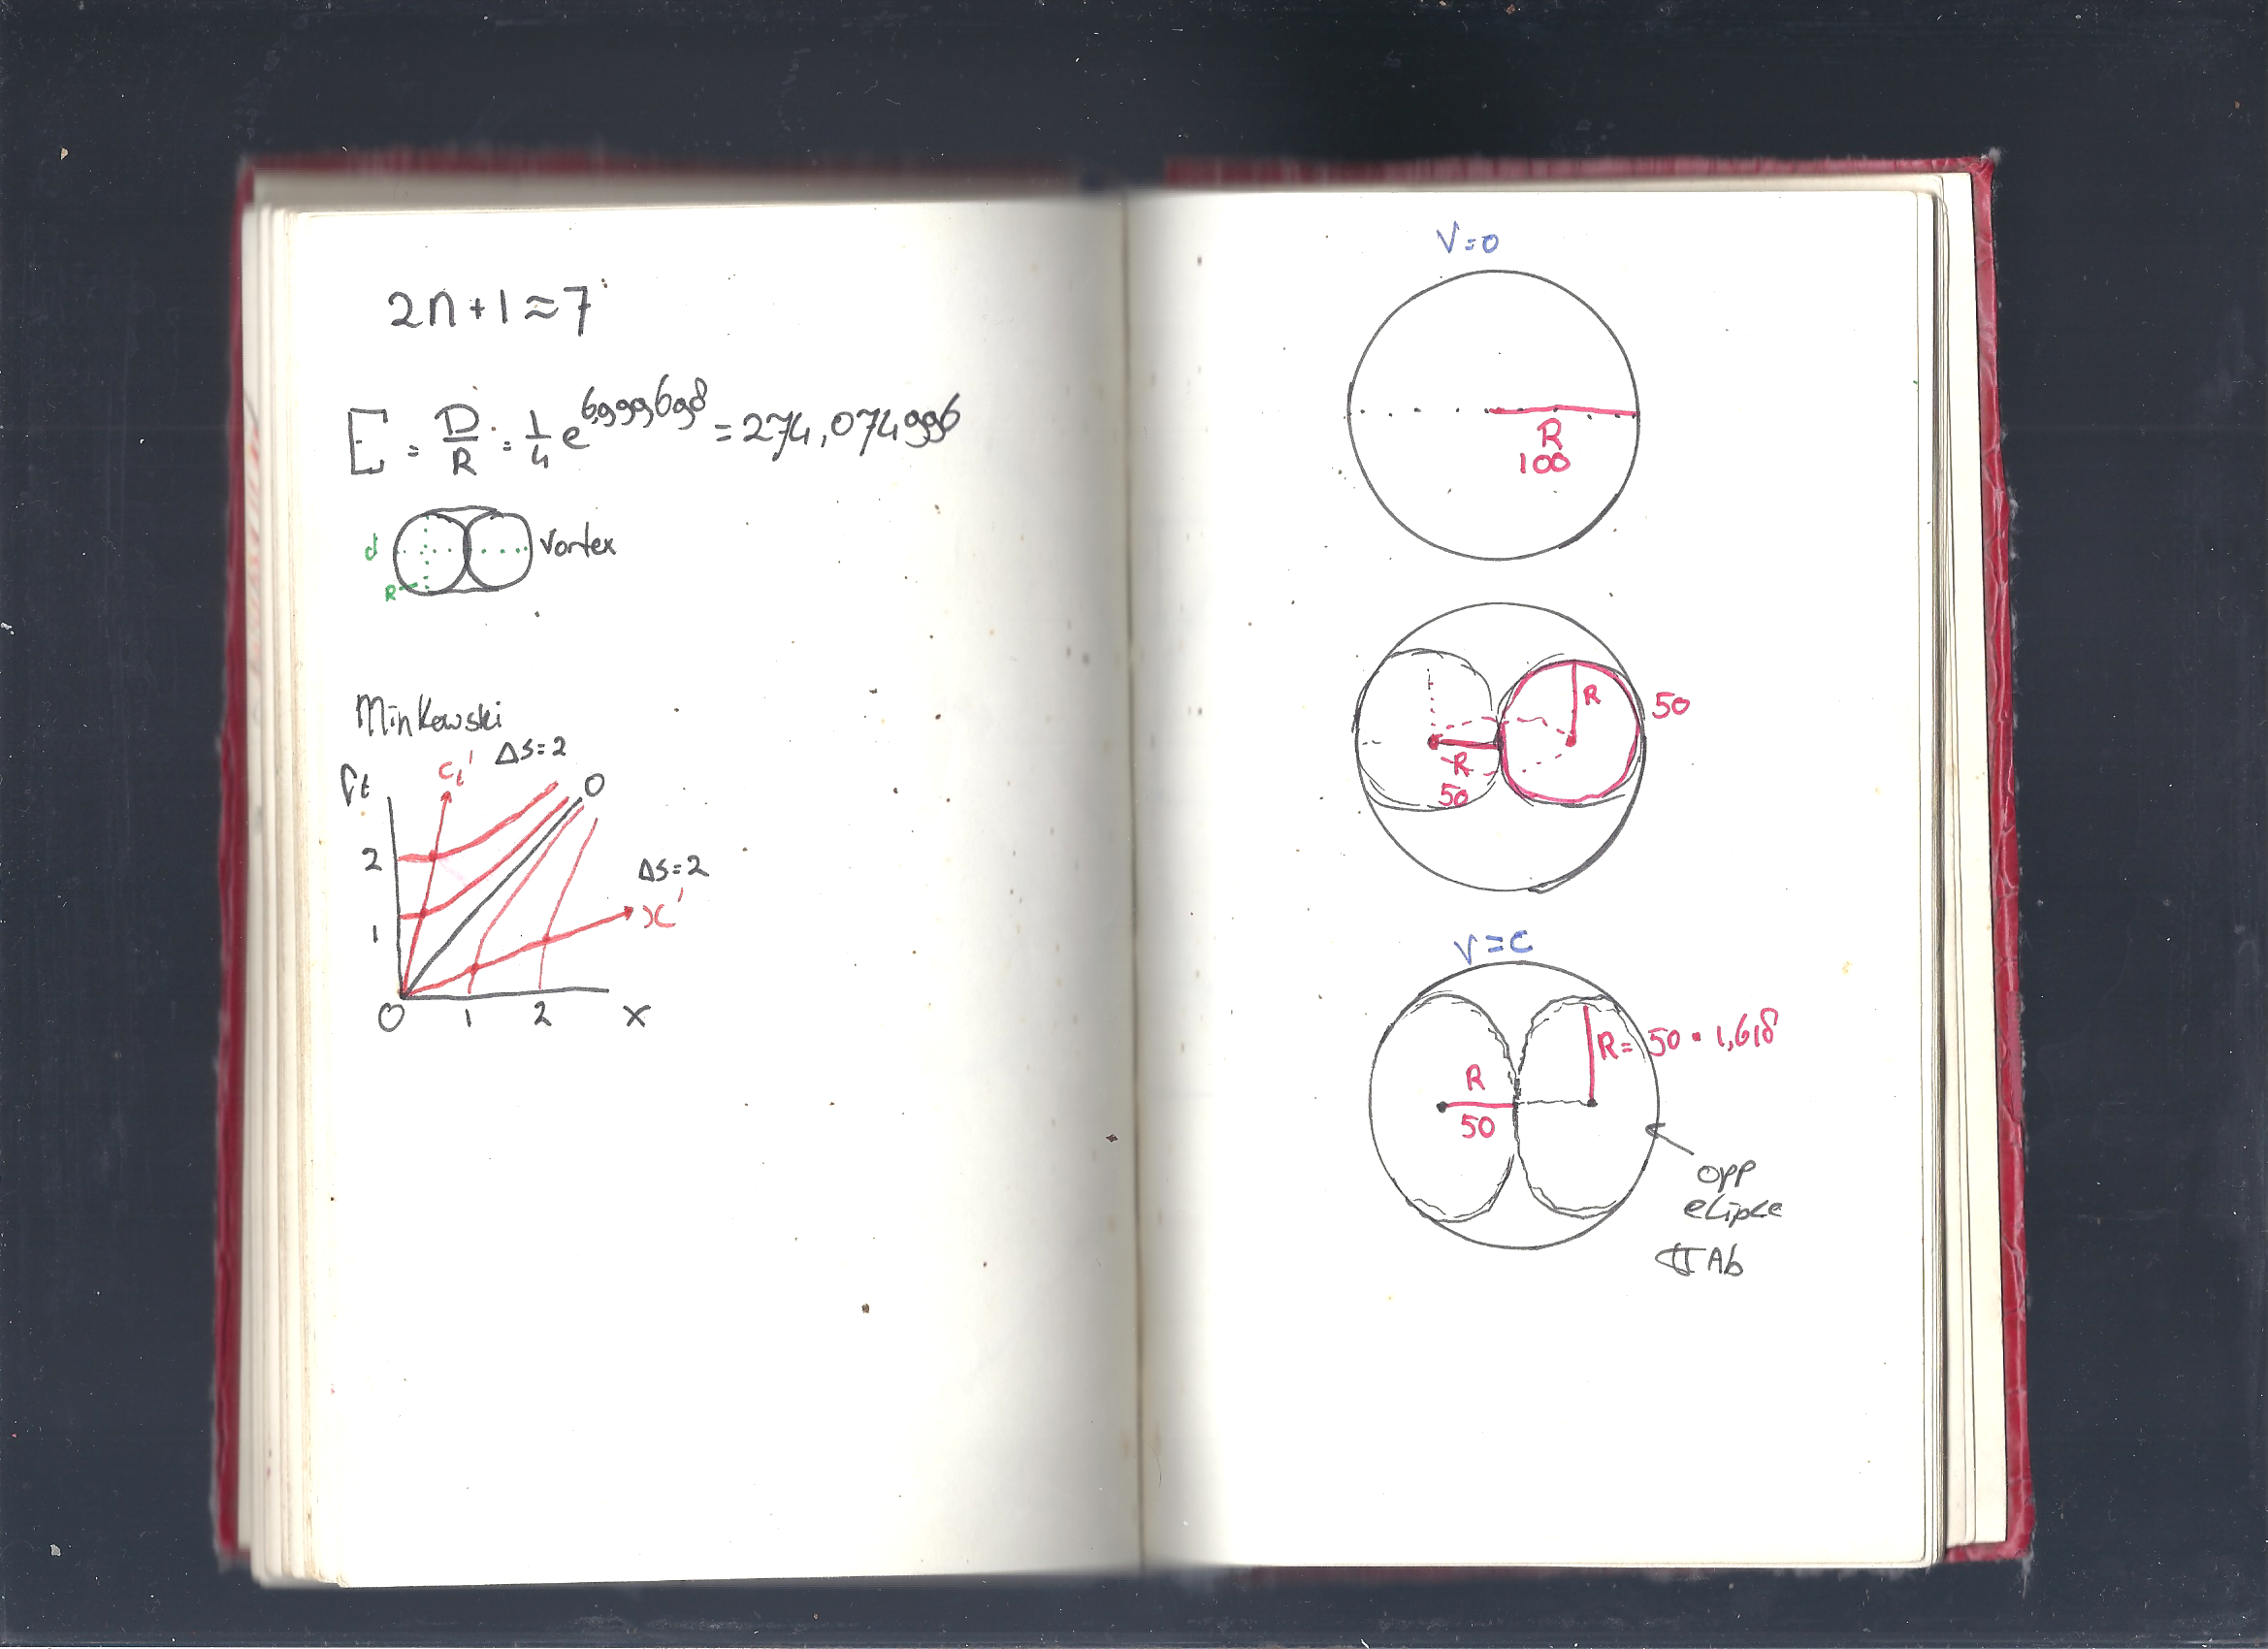 2n+1≈7
E = D/R = 1/4 e^6,999698 = 274,074996
d
R
Vortex
Minkowski
Δs=2
O
2
Δs=2
x'
1
O 1 2 x
V=0
R
100
R
50
R
50
V=c
R= 50 · 1,618
R
50
opp
elipce
π Ab